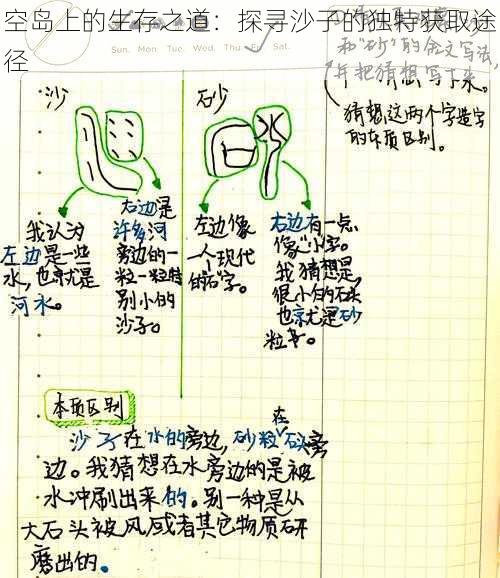 空岛上的生存之道：探寻沙子的独特获取途
径
和“砂”的金文写法，
Sun. Mon. Tue. Wed. Thu. Fri. Sat.
并把猜想写下来。
猜想这两个字造字
的本质区别。
沙
砂
我认为
左边是一些
水，也就是
河水。
右边是
许多河
旁边的一
粒一粒特
别小的
沙子。
左边像
一个现代
的“石”字。
右边有一点
像“小”字。
我猜想是，
很小的石头
也就是砂
粒子。
本质区别
沙子在水的旁边，砂粒在石头旁
边。我猜想在水旁边的是被
水冲刷出来的。别一种是从
大石头被风或者其它物质研
磨出的。